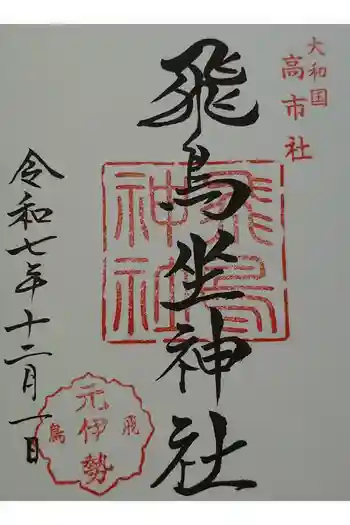 大和国
高市社
飛鳥坐神社
飛鳥
神社
令和七年十二月一日
元伊勢
飛鳥